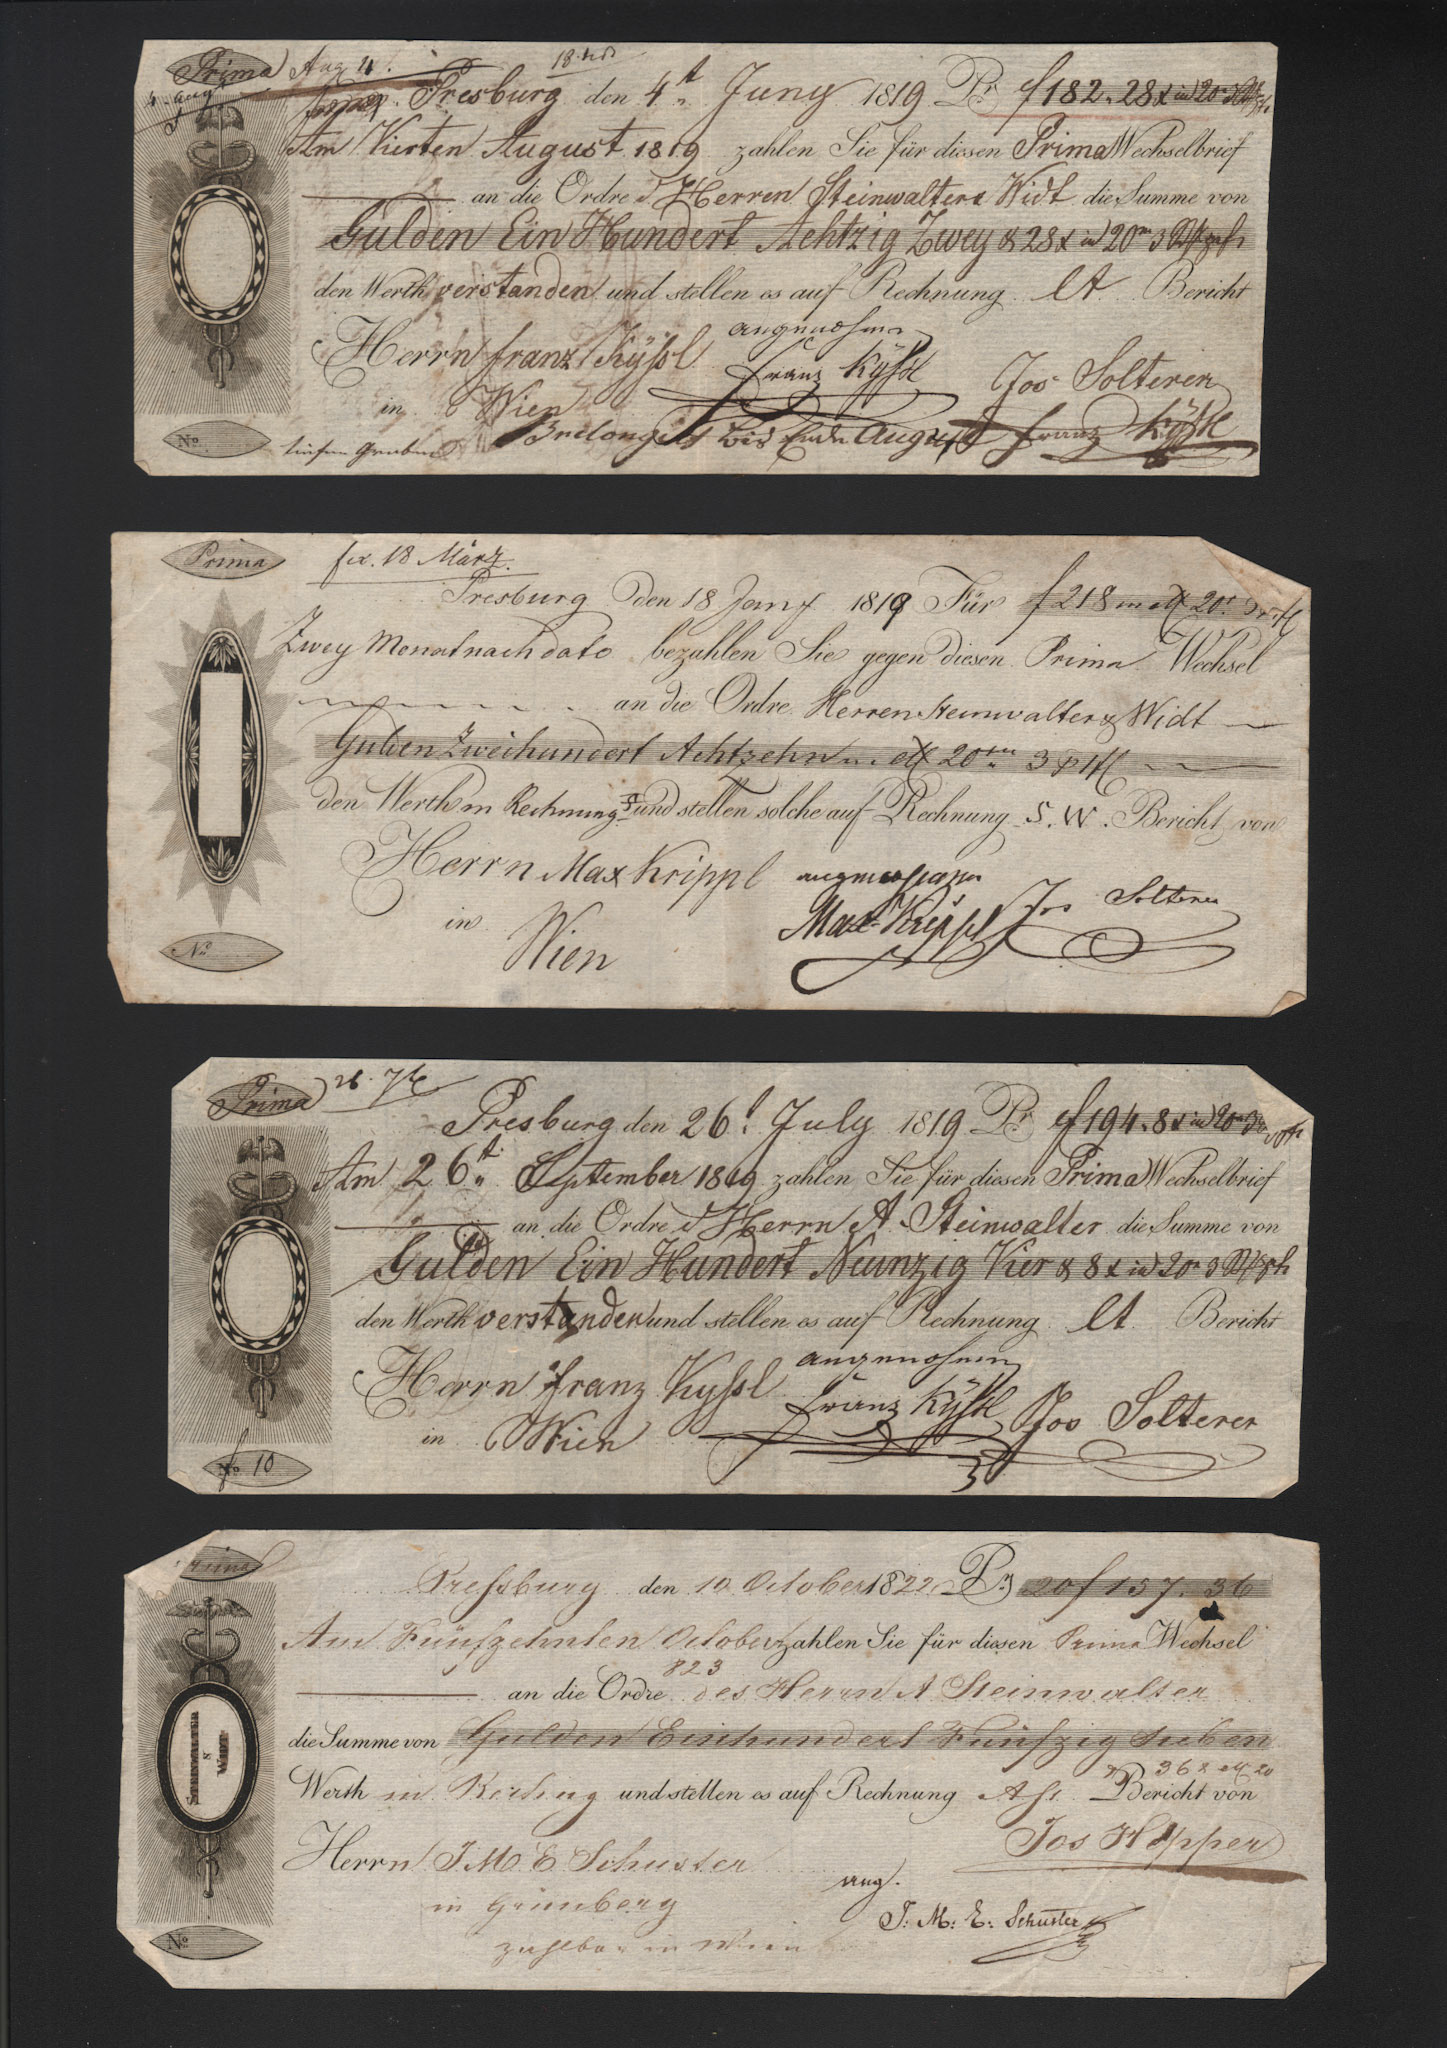 Prima Aug 4
4 Aug
Presburg den 4t Juny 1819 Pr f 182. 28 x in 20
Am Vierten August 1819 zahlen Sie für diesen Prima Wechselbrief
an die Ordre d Herren Steinwalter & Widt die Summe von
Gulden Ein Hundert Achtzig Zwey & 28 x in 20 3
den Werth verstanden und stellen es auf Rechnung lt. Bericht
Herrn Franz Kyßl angenohmen
Franz Kÿßl Jos Solterer
in Wien
bis Ende August Franz Kÿßl
No. tiefen Graben
Prima 18 März
Presburg Den 18 Jany 1819 Für f 218 in 20
Zwey Monat nach dato bezahlen Sie gegen diesen Prima Wechsel
an die Ordre Herren Steinwalter & Widt
Gulden Zweihundert Achtzehn 20 3
den Werth in Rechnung und stellen solche auf Rechnung S. W. Bericht von
Herrn Max Krippl angenohmen
Max Krippl Jos Solterer
in Wien
No.
Prima 26. 7
Presburg den 26t July 1819 Pr f 194. 8 x in 20
Am 26t September 1819 zahlen Sie für diesen Prima Wechselbrief
an die Ordre d Herrn A. Steinwalter die Summe von
Gulden Ein Hundert Neunzig Vier & 8 x in 20 3
den Werth verstanden und stellen es auf Rechnung lt. Bericht
Herrn Franz Kyßl angenohmen
Franz Kÿßl Jos Solterer
in Wien
No 10
Prima
Preßburg den 10 October 1822 Pr 20 f 157. 36
Am Fünfzehnten October zahlen Sie für diesen Prima Wechsel
823
an die Ordre des Herrn A Steinwalter
die Summe von Gulden Einhundert Fünfzig Sieben
36 x 20
Werth in Rechnug und stellen es auf Rechnung Bericht von
STEINWALTER & WIDT
Jos Hopper
Herrn J M E Schuster
ang.
in Grünberg
J: M: E: Schuster
zahlbar in Wien
No.